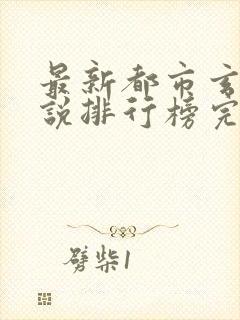 最新都市玄
说排行榜完
劈柴1